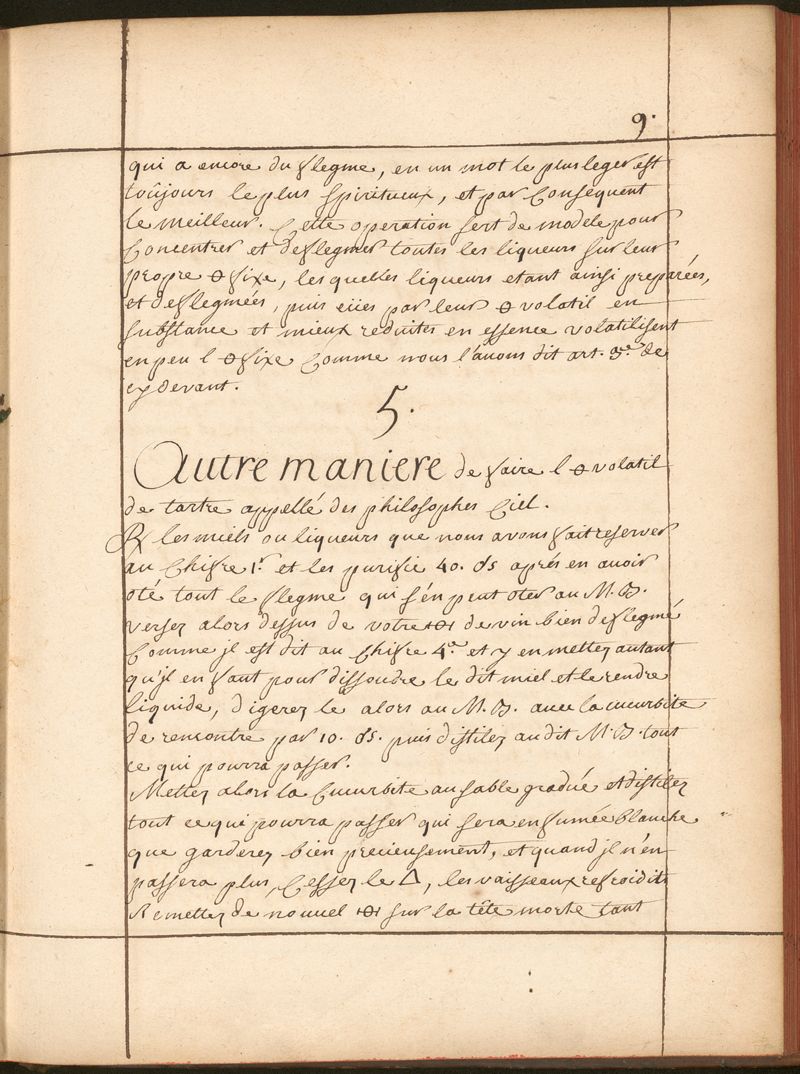 9.
qui a encore du flegme, en un mot le plus leger est
toûjours le plus spiritueux, et par Consequent
le meilleur. Cette operation sert de modele pour
Concentrer et deflegmer toutes les liqueurs sur leur
propre 🜔 fixe, les quelles liqueurs etant ainsi preparées,
et deflegmées, puis par leur 🜔 volatil en
substance et mieux reduites en essence volatilisent
en peu l 🜔 fixe Comme nous l'avons dit art. 3.e de
cy devant.
5.
Autre maniere de faire l 🜔 volatil
de tartre appellé des philosophes Ciel.
℞ les miels ou liqueurs que nous avons fait reserver
au Chifre 1.r et les purifié 40. ds aprés en avoir
oté tout le flegme qui s'én peut oter au M.B.
versez alors dessus de votre de vin bien deflegmé
Comme jl est dit au Chifre 4.e et y en mettez autant
qu'jl en faut pour dissoudre le dit miel et le rendre
liquide, digerez le alors au M.B. avec la cucurbite
de rencontre par 10. ds. puis distilez au dit M.B. tout
ce qui pourra passer.
Mettez alors la Cucurbite au sable gradué et distilez
tout ce qui pourra passer qui sera en fumée blanche
que garderez bien precieusement, et quand jl n'én
passera plus, Cessez le △, les vaisseaux refroidits
Remettez de nouvel sur la tête morte tant